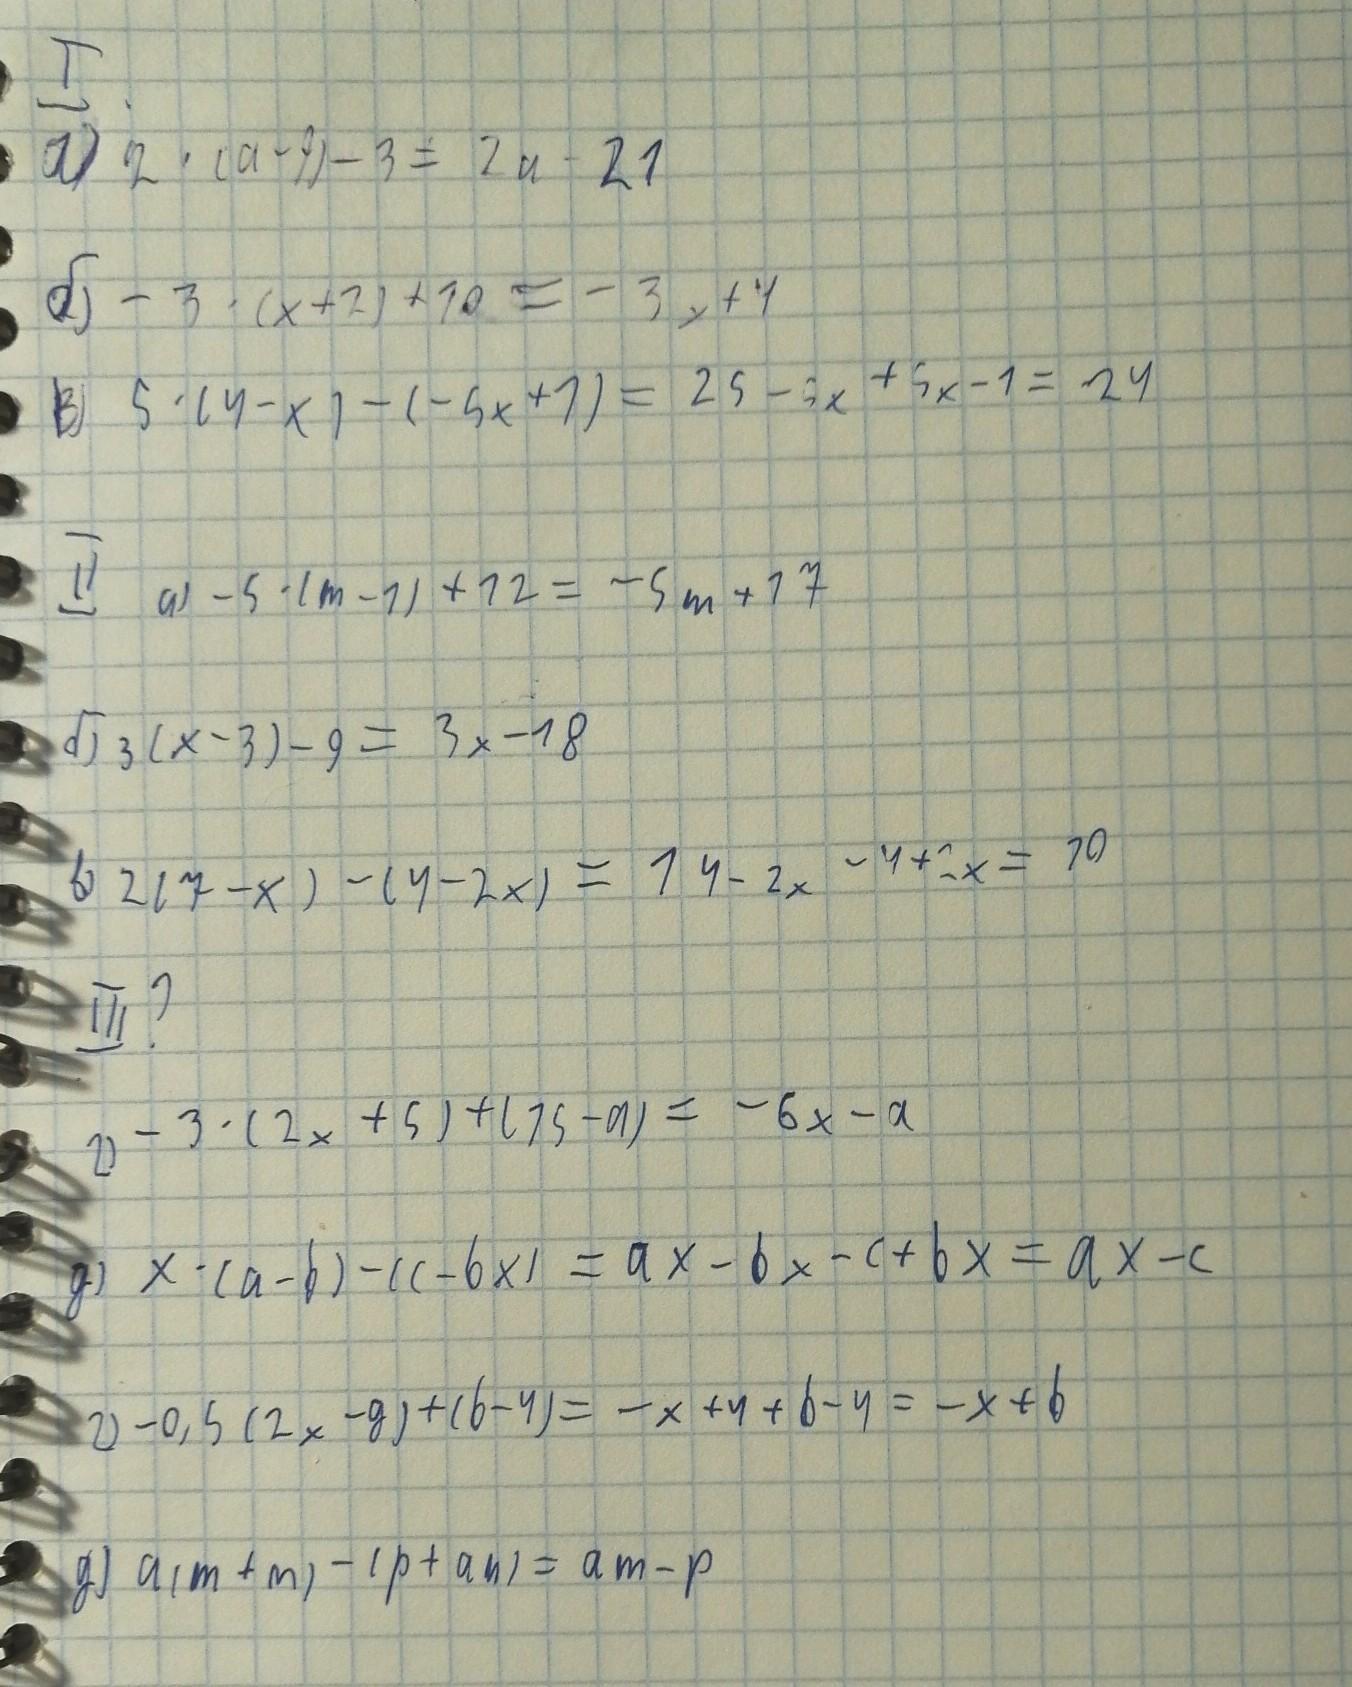 I
а) 2 · (a-9) - 3 = 2a - 21
б) - 3 · (x+2) + 10 = - 3x + 4
в) 5 · (4-x) - (-5x+1) = 25 - 5x + 5x - 1 = 24
II а) -5 · (m-1) + 12 = -5m + 17
б) 3(x-3) - 9 = 3x - 18
в) 2(7-x) - (4-2x) = 14 - 2x - 4 + 2x = 10
III ?
г) - 3 · (2x + 5) + (15 - a) = - 6x - a
д) x · (a-b) - (c-bx) = ax - bx - c + bx = ax - c
г) -0,5 (2x - 8) + (b-4) = -x + 4 + b - 4 = -x + b
д) a(m + n) - (p + an) = am - p